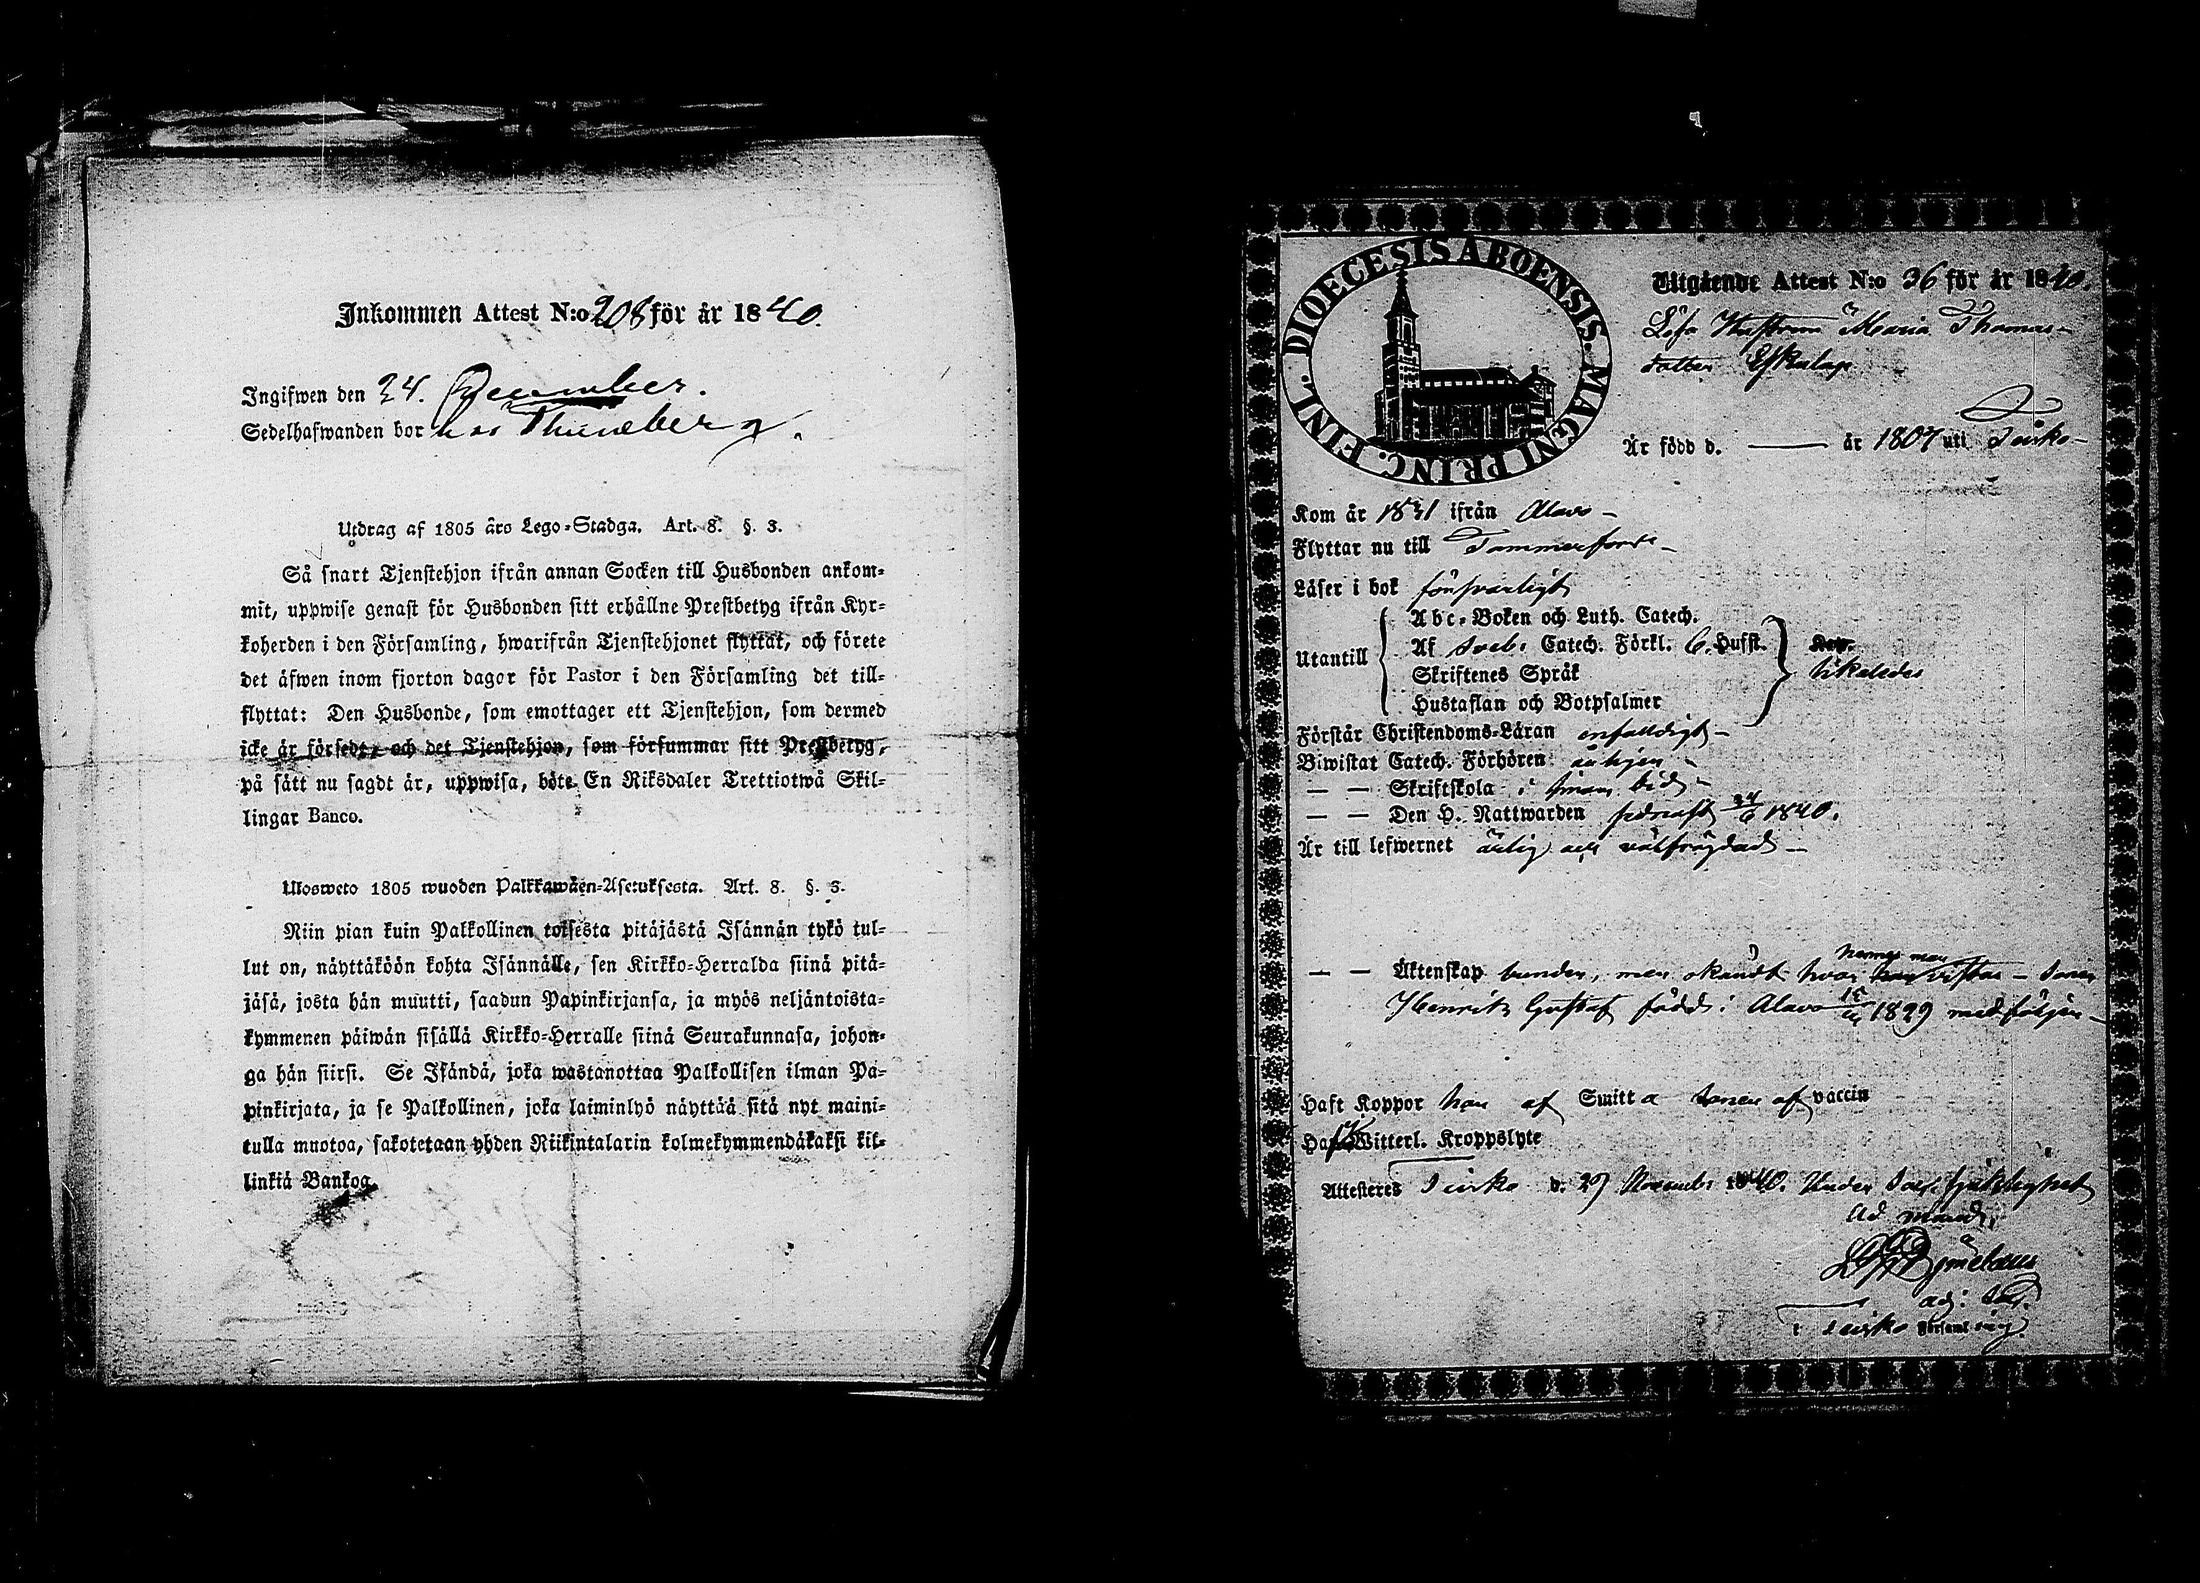 Inkommen Attest N:o 208 för år 1840.
Ingifwen den 24. December.
Sedelhafwanden bor hos Thuneberg.
Utdrag af 1805 års Lego-Stadga. Art. 8. §. 3.
Så snart Tjenstehjon ifrån annan Socken till Husbonden ankom-
mit, uppwise genast för Husbonden sitt erhållne Prestbetyg ifrån Kyr-
koherden i den Församling, hwarifrån Tjenstehjonet flyttat, och förete
det äfwen inom fjorton dagar för Pastor i den Församling det till-
flyttat: Den Husbonde, som emottager ett Tjenstehjon, som dermed
icke är försedt, och det Tjenstehjon, som försummar sitt Prestbetyg,
på sätt nu sagdt är, uppwisa, böte En Riksdaler Trettiotwå Skil-
lingar Banco.
Ulosweto 1805 wuoden Palkkawäen-Asetuksesta. Art. 8. §. 3.
Niin pian kuin Palkollinen toisesta pitäjästä Isännän tykö tul-
lut on, näyttäköön kohta Isännälle, sen Kirkko-Herralda siinä pitä-
jäsä, josta hän muutti, saadun Papinkirjansa, ja myös neljäntoista-
kymmenen päiwän sisällä Kirkko-Herralle siinä Seurakunnasa, johon-
ga hän siirsi. Se Isändä, joka wastanottaa Palkollisen ilman Pa-
pinkirjata, ja se Palkollinen, joka laiminlyö näyttää sitä nyt maini-
tulla muotoa, sakotetaan yhden Riikintalarin kolmekymmendäkaksi kil-
linkiä Bankoa.
DIOECESIS ABOENSIS. MAGNI PRINC. FINL.
Utgående Attest N:o 36 för år 1840.
Lösa Hustrun Maria Thomas-
dotter
Är född d. — år 1807 uti Teisko
Kom år 1831 ifrån Alavo
Flyttar nu till Tammerfors
Läser i bok försvarligt
Utantill
Abc-Boken och Luth. Catech.
Af Sveb. Catech. Förkl. 6. Hufst.
Skriftenes Språk
Hustaflan och Botpsalmer
likaledes
Förstår Christendoms-Läran enfaldigt
Biwistat Catech. Förhören
— — Skriftskola i sinom tid
— — Den H. Nattwarden sednast 24/6 1840.
Är till lefwernet ärlig och välfrägdad
— — Äktenskap bunden, men okändt hvar hennes man vistas – Sonen
Henrik Gustaf född i Alavo 1829 medföljer
Haft Koppor hon af Smitta sonen af vaccin
Haft Witterl. Kroppslyte
Attesteras Teisko d. 27 November 1840. Under
Ad mand.
adj:
i Teisko Församling.